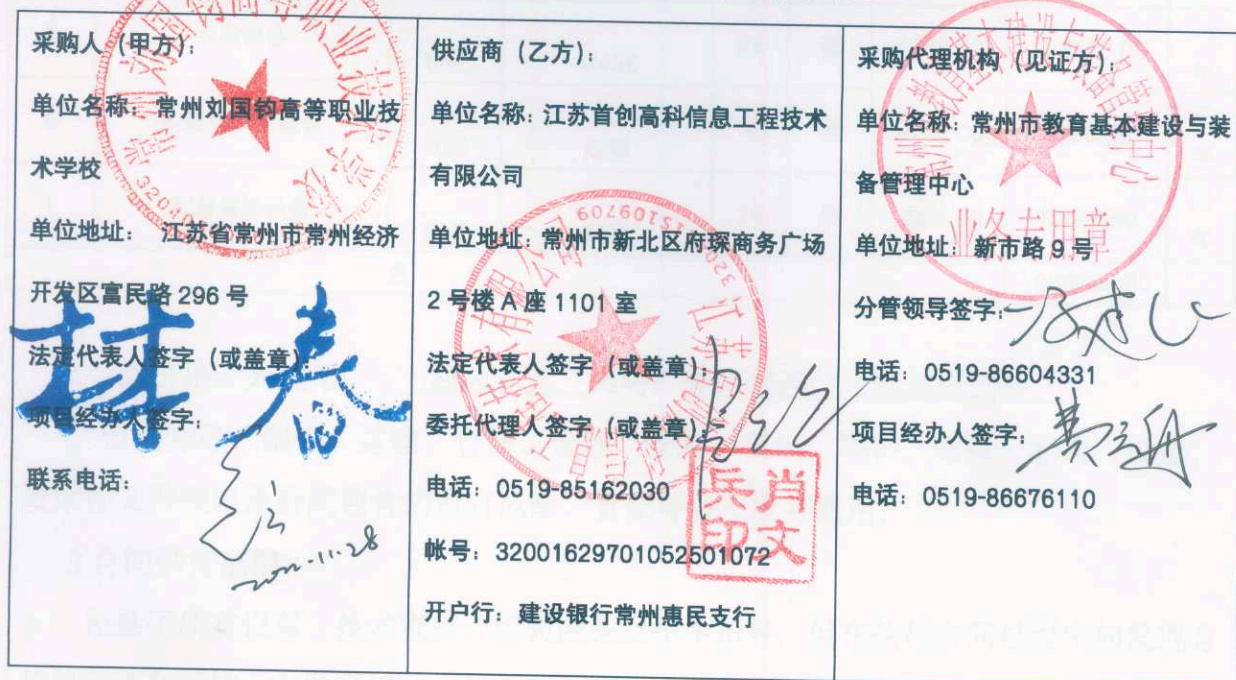 采购人（甲方）：
单位名称：常州刘国钧高等职业技
术学校
单位地址： 江苏省常州市常州经济
开发区富民路 296 号
法定代表人签字（或盖章）：
项目经办人签字：
联系电话：
春
供应商（乙方）：
单位名称：江苏首创高科信息工程技术
有限公司
单位地址：常州市新北区府琛商务广场
2 号楼 A 座 1101 室
法定代表人签字（或盖章）：
委托代理人签字（或盖章）：
电话：0519-85162030
帐号：32001629701052501072
开户行：建设银行常州惠民支行
肖文
兵印
采购代理机构（见证方）：
单位名称：常州市教育基本建设与装
备管理中心
单位地址：新市路 9 号
分管领导签字：
电话：0519-86604331
项目经办人签字：
电话：0519-86676110
常州刘国钧高等职业技术学校
常州市教育基本建设与装备管理中心
业务专用章